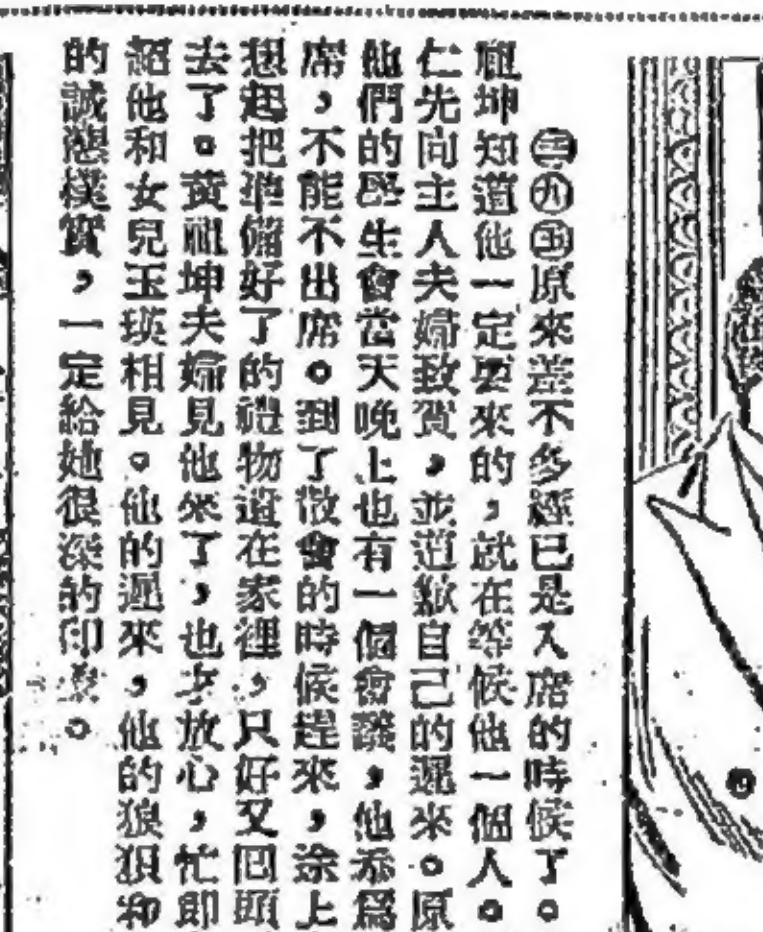 ㊂㊈㊄原來差不多經已是入席的時候了。
祖坤知道他一定要來的，就在等候他一個人。
仁先向主人夫婦致賀，並道歉自己的遲來。原
他們的學生會當天晚上也有一個會議，他忝爲
席，不能不出席。到了散會的時候趕來，途上
想起把準備好了的禮物遺在家裡，只好又回頭
去了。黃祖坤夫婦見他來了，也才放心，忙即
紹他和女兒玉瑛相見。他的遲來，他的狼狽和
的誠懇樸實，一定給她很深的印象。